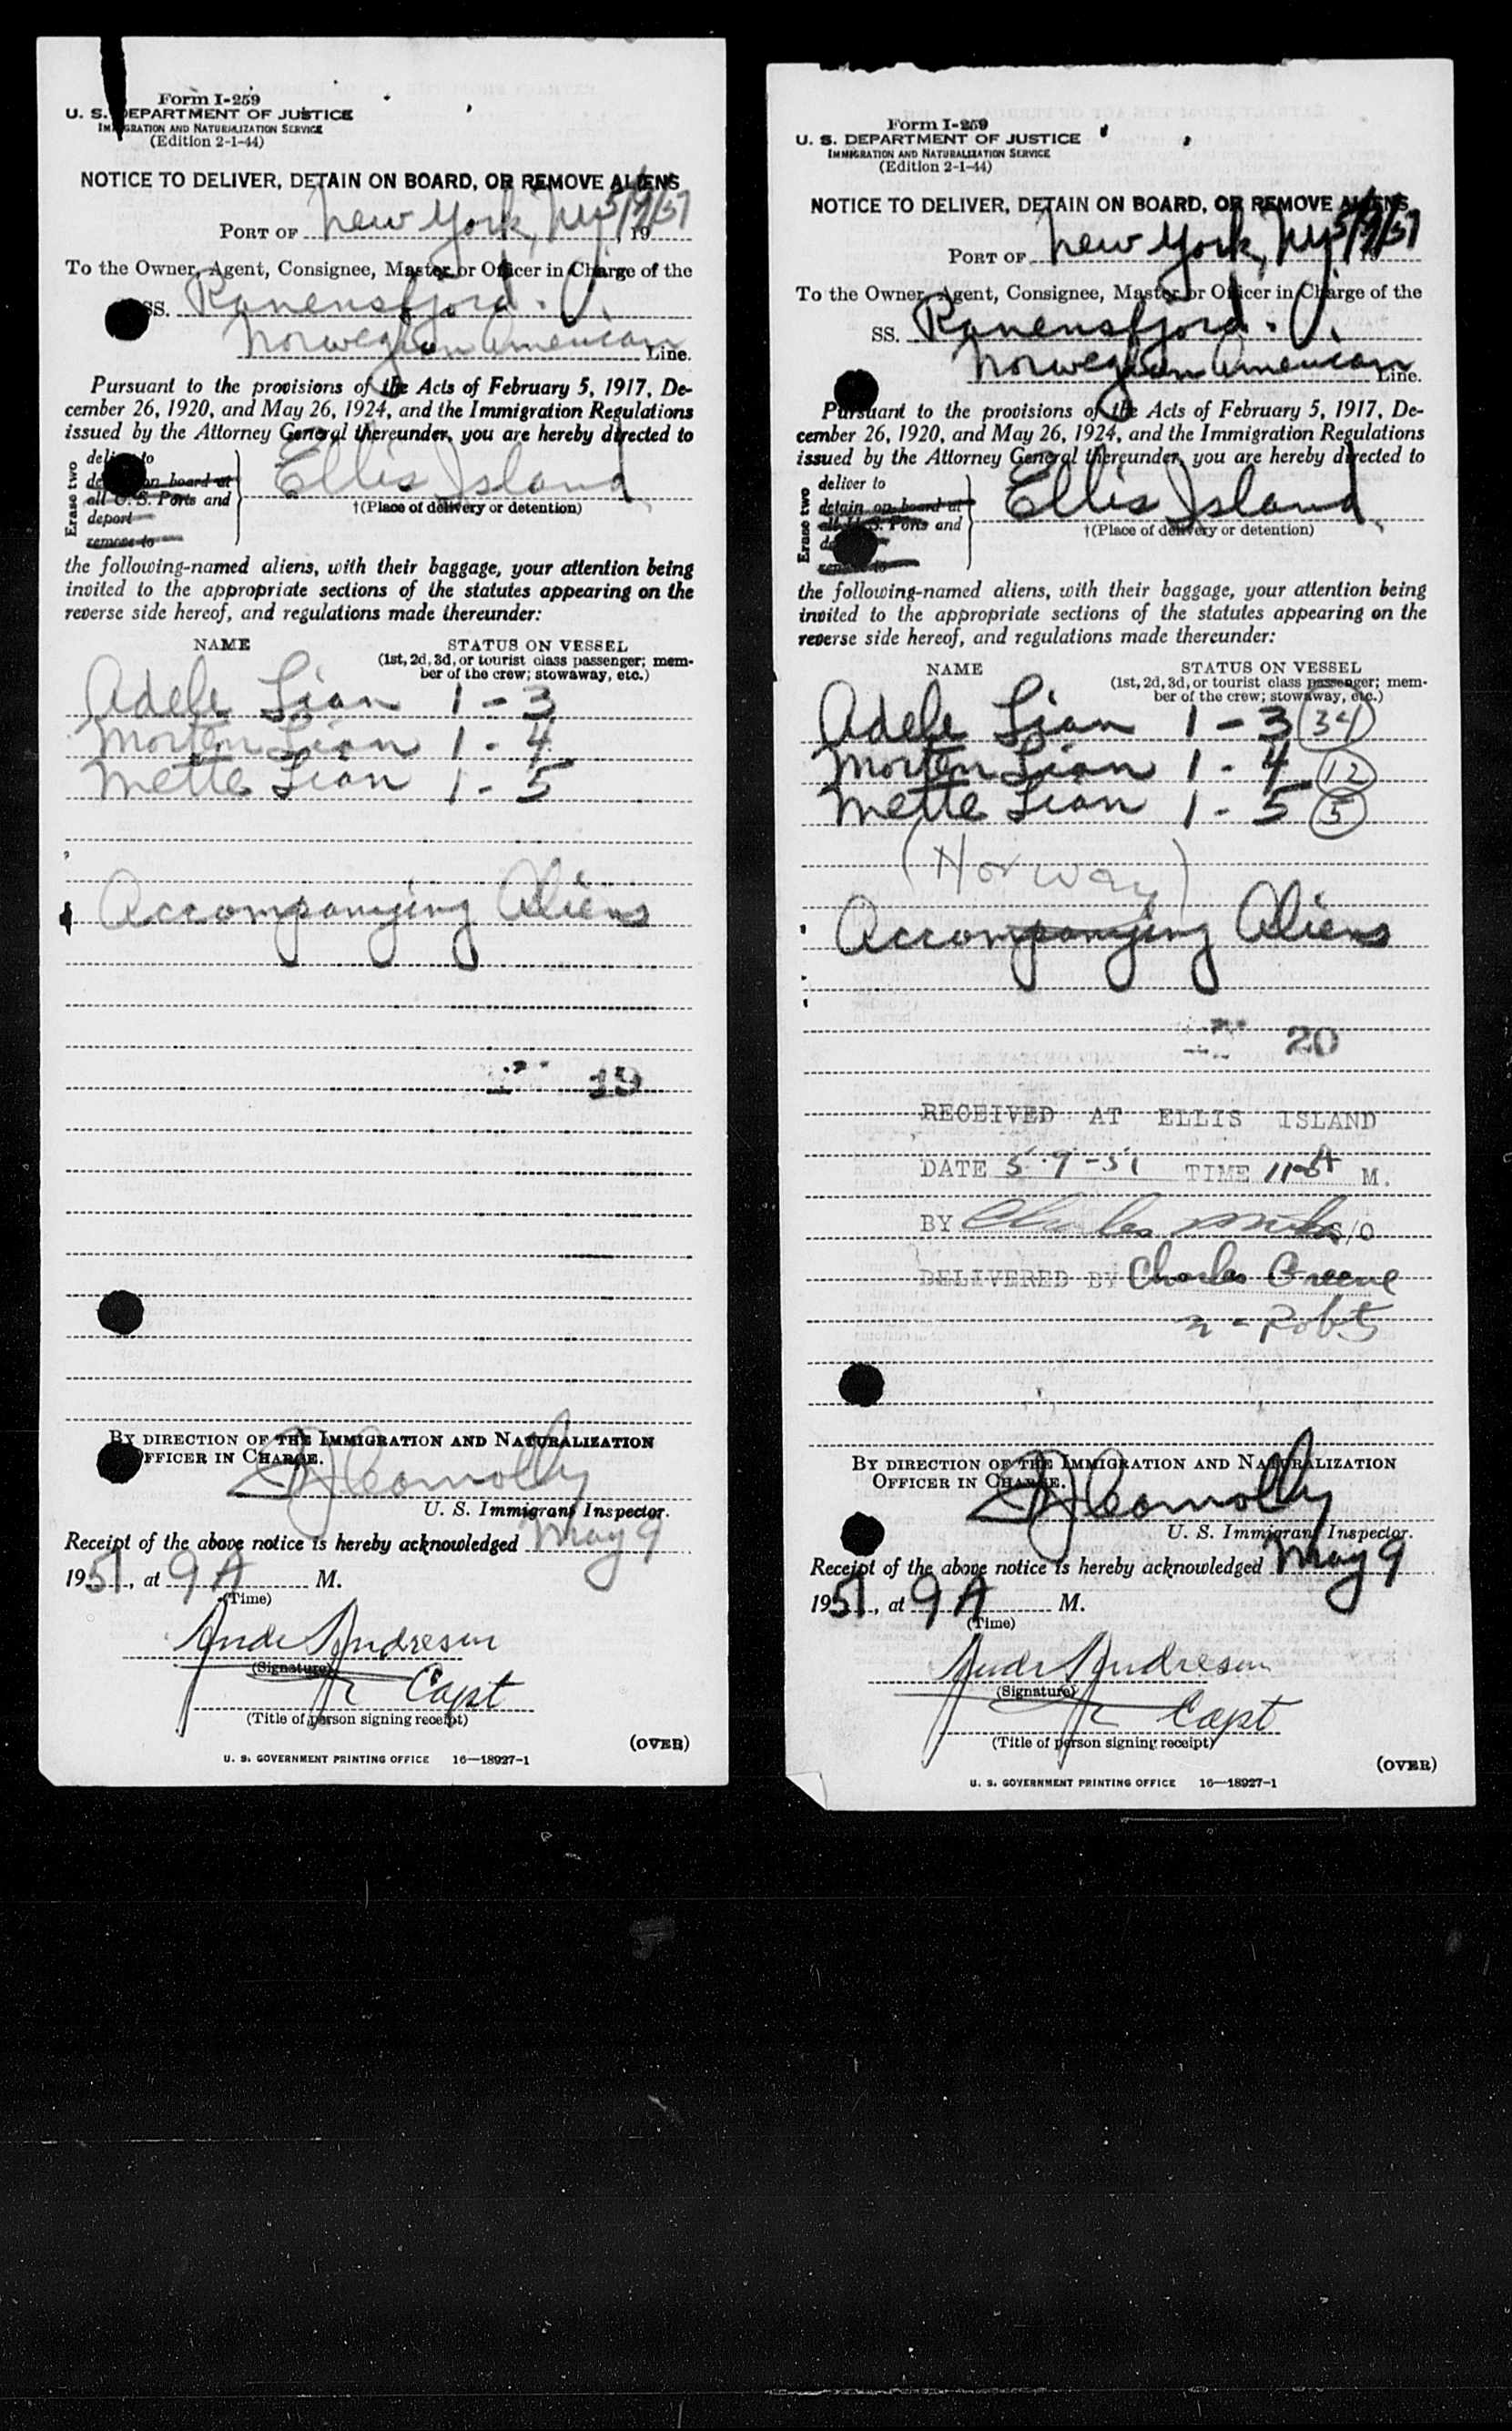 Form I-259
U. S. DEPARTMENT OF JUSTICE
IMMIGRATION AND NATURALIZATION SERVICE
(Edition 2-1-44)
NOTICE TO DELIVER, DETAIN ON BOARD, OR REMOVE ALIENS
PORT OF New York, NY 5/9/51, 19
To the Owner, Agent, Consignee, Master or Officer in Charge of the
SS. Ranensfjord.
Norwegian American Line.
Pursuant to the provisions of the Acts of February 5, 1917, De-
cember 26, 1920, and May 26, 1924, and the Immigration Regulations
issued by the Attorney General thereunder, you are hereby directed to
Erase two
deliver to
detain on board at
all U. S. Ports and
deport
remove to
Ellis Island
†(Place of delivery or detention)
the following-named aliens, with their baggage, your attention being
invited to the appropriate sections of the statutes appearing on the
reverse side hereof, and regulations made thereunder:
NAME STATUS ON VESSEL
(1st, 2d, 3d, or tourist class passenger; mem-
ber of the crew; stowaway, etc.)
Adele Lian 1 - 3
Morten Lian 1 - 4
Mette Lian 1 - 5
Accompanying Aliens
19
BY DIRECTION OF THE IMMIGRATION AND NATURALIZATION
OFFICER IN CHARGE.
Connolly
U. S. Immigrant Inspector.
Receipt of the above notice is hereby acknowledged May 9
1951, at 9 A M.
(Time)
Andresen
(Signature)
Capt
(Title of person signing receipt)
(OVER)
U. S. GOVERNMENT PRINTING OFFICE 16—18927-1
Form I-259
U. S. DEPARTMENT OF JUSTICE
IMMIGRATION AND NATURALIZATION SERVICE
(Edition 2-1-44)
NOTICE TO DELIVER, DETAIN ON BOARD, OR REMOVE ALIENS
PORT OF New York, NY 5/9/51, 19
To the Owner, Agent, Consignee, Master or Officer in Charge of the
SS. Ranensfjord.
Norwegian American Line.
Pursuant to the provisions of the Acts of February 5, 1917, De-
cember 26, 1920, and May 26, 1924, and the Immigration Regulations
issued by the Attorney General thereunder, you are hereby directed to
Erase two
deliver to
detain on board at
all U. S. Ports and
deport
remove to
Ellis Island
†(Place of delivery or detention)
the following-named aliens, with their baggage, your attention being
invited to the appropriate sections of the statutes appearing on the
reverse side hereof, and regulations made thereunder:
NAME STATUS ON VESSEL
(1st, 2d, 3d, or tourist class passenger; mem-
ber of the crew; stowaway, etc.)
Adele Lian 1 - 3 34
Morten Lian 1 - 4 12
Mette Lian 1 - 5 5
(Norway)
Accompanying Aliens
20
RECEIVED AT ELLIS ISLAND
DATE 5-9-51 TIME M.
BY Charles S/O
DELIVERED BY Charles Greene
BY DIRECTION OF THE IMMIGRATION AND NATURALIZATION
OFFICER IN CHARGE.
Connolly
U. S. Immigrant Inspector.
Receipt of the above notice is hereby acknowledged May 9
1951, at 9 A M.
(Time)
Andresen
(Signature)
Capt
(Title of person signing receipt)
(OVER)
U. S. GOVERNMENT PRINTING OFFICE 16—18927-1